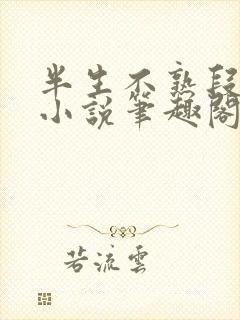 半生不熟段
小说筆趣閣
若流雲